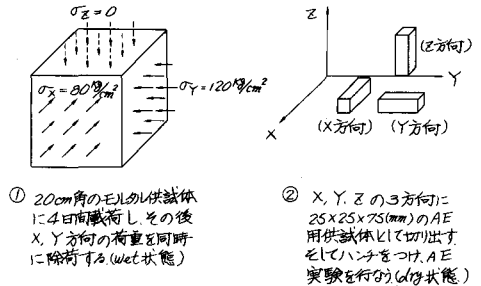 σZ=0
σX=80kg/cm²
σY=120kg/cm²
Z
Y
X
(Z方向)
(X方向)
(Y方向)
① 20cm角のモルタル供試体
に4日間載荷し、その後
X, Y方向の荷重を同時
に除荷する。(wet状態)
② X, Y, Zの3方向に
25×25×75(mm)のAE
用供試体として切出す
そしてハンチをつけ、AE
実験を行なう(dry状態)